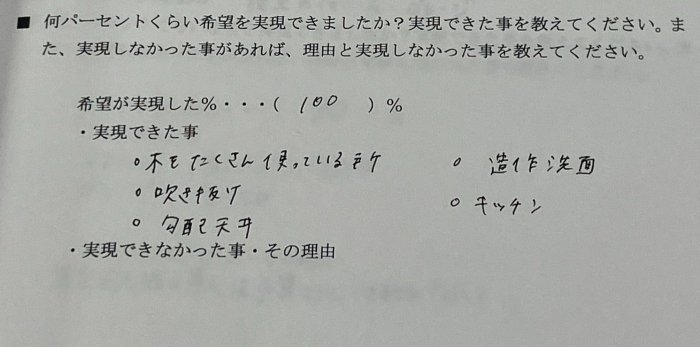 ■ 何パーセントくらい希望を実現できましたか？実現できた事を教えてください。ま
た、実現しなかった事があれば、理由と実現しなかった事を教えてください。
希望が実現した％・・・（ 100 ）％
・実現できた事
○木をたくさん使っている所
○ 造作洗面
○吹き抜け
○キッチン
○ 勾配天井
・実現できなかった事・その理由